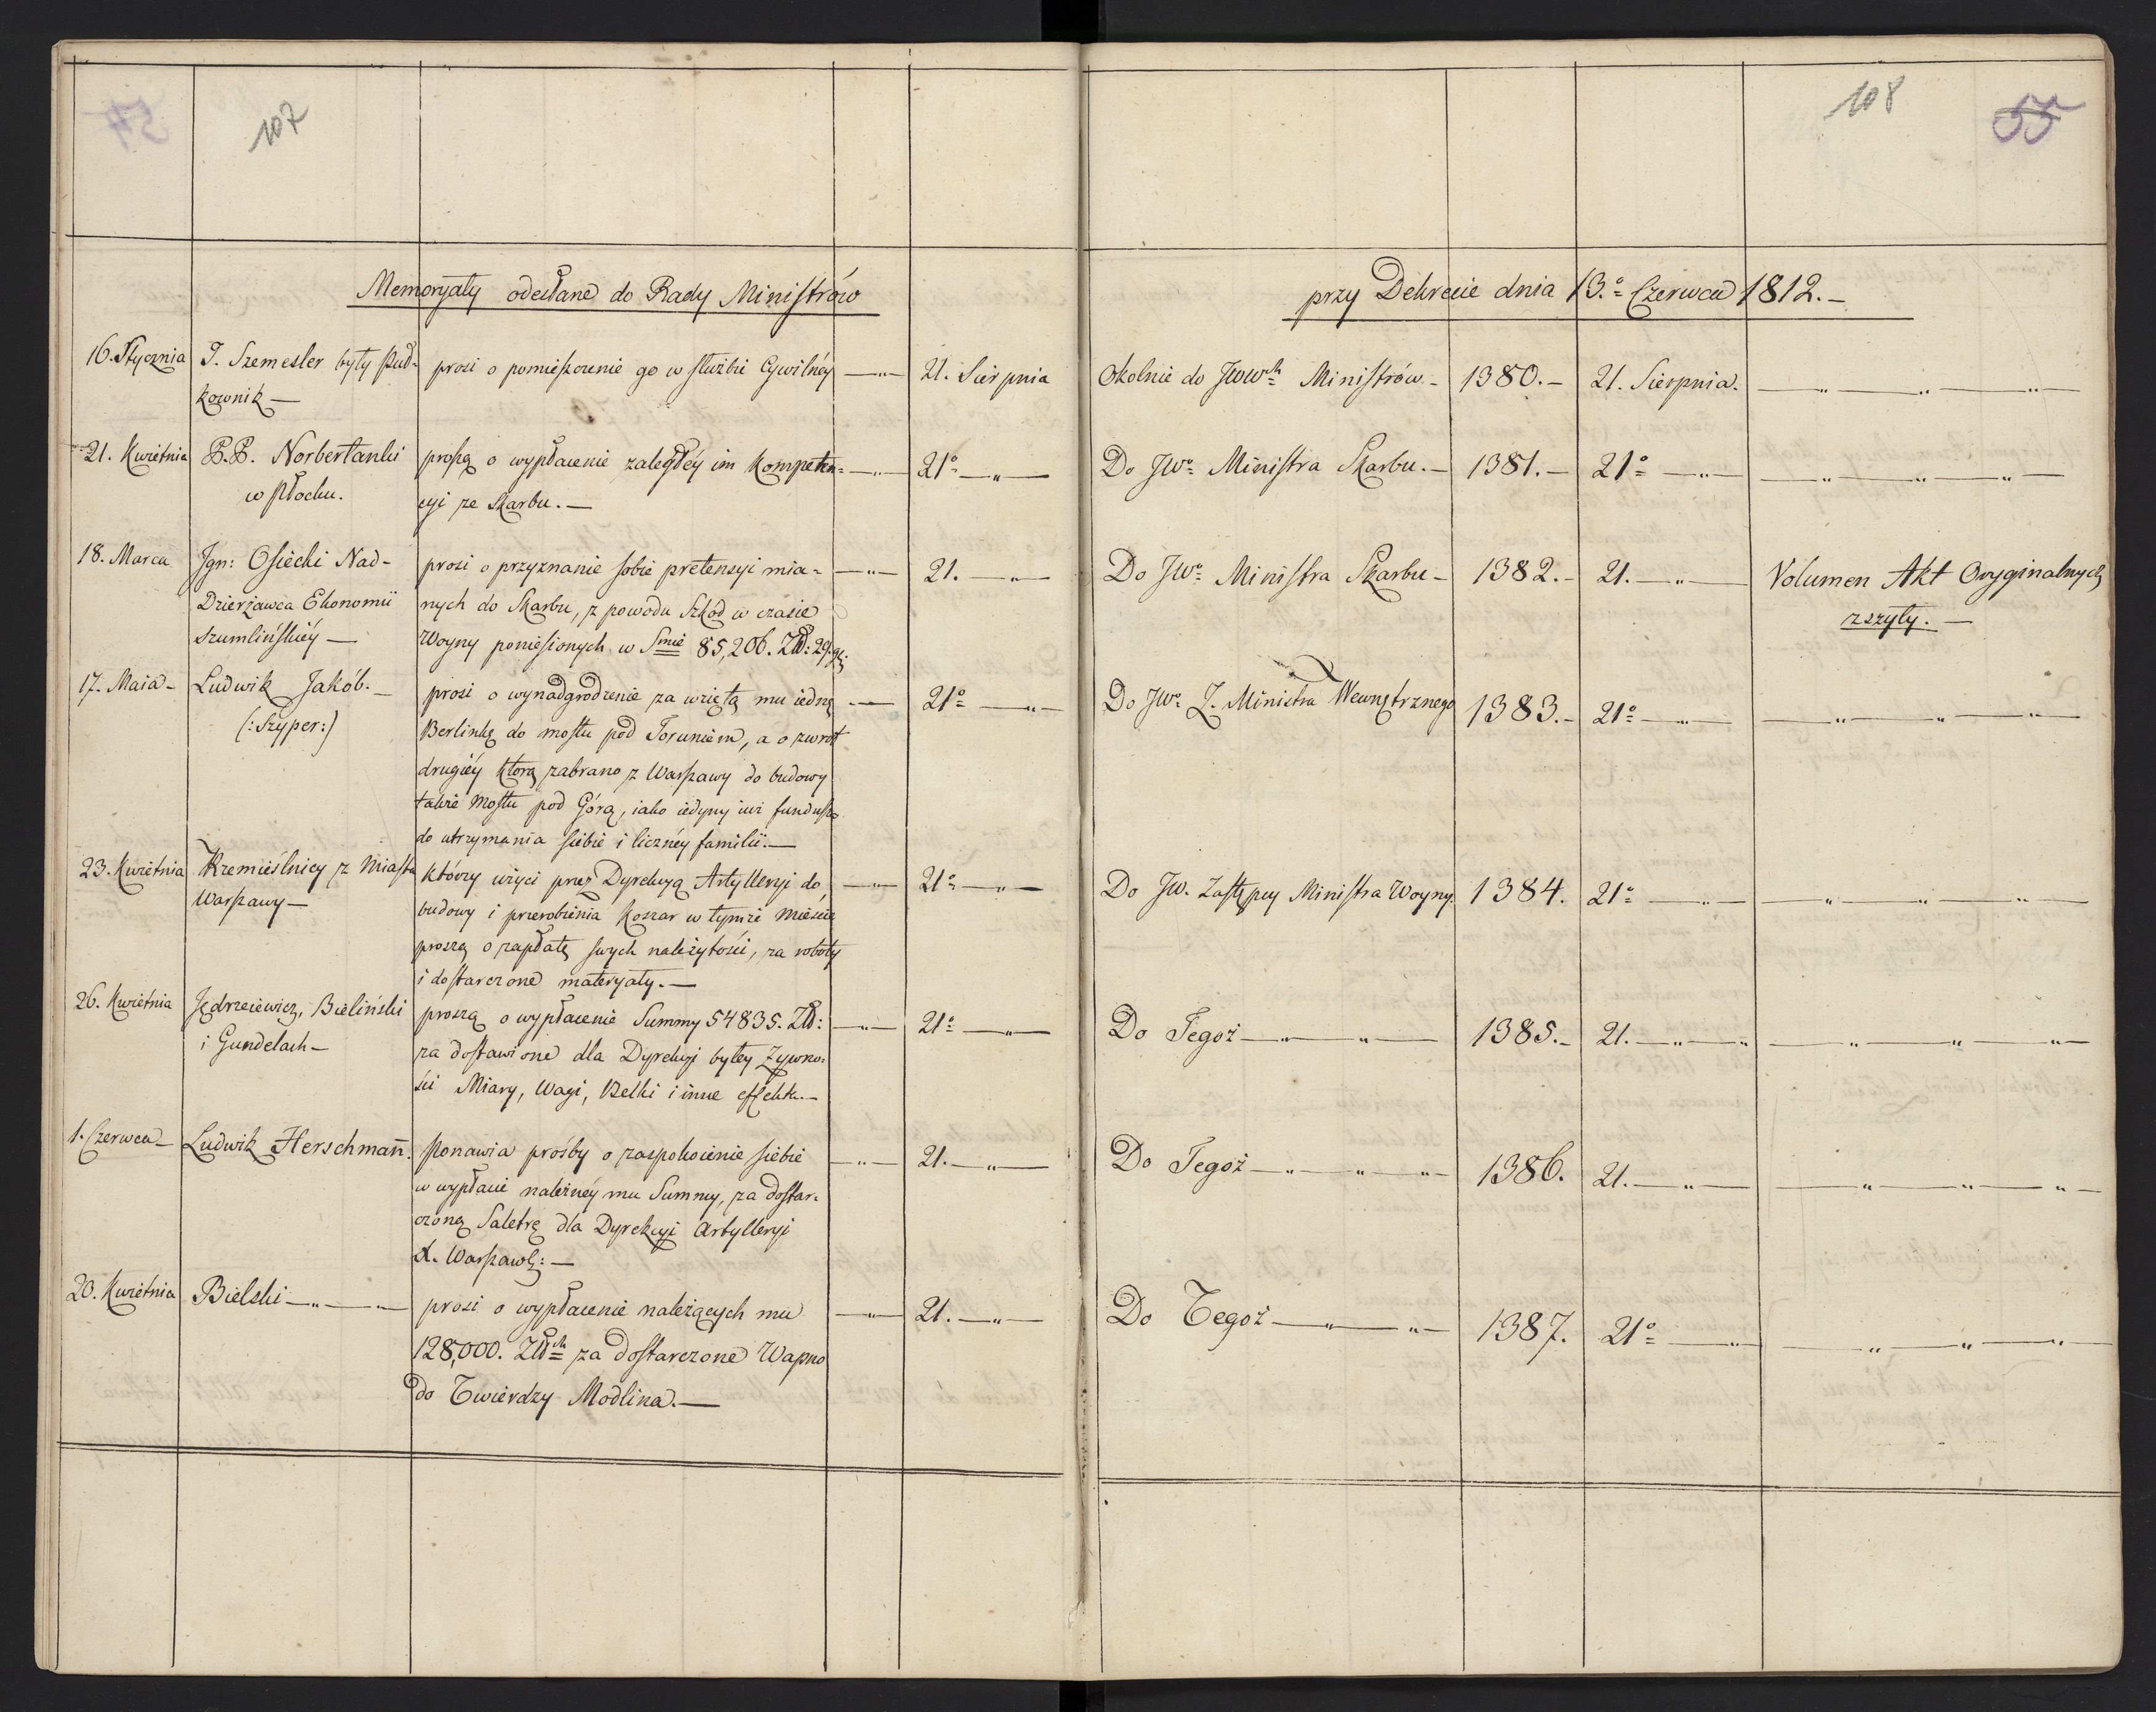 107
108
55
Memoryały odesłane do Rady Ministrów
przy Dekrecie dnia 13.º Czerwca 1812.—
16. Stycznia J. Szemesler były Puł- prosi o pomieszczenie go w służbie Cywilnéy —„— 21. Sierpnia Okolnie do JWW.ch Ministrów — 1380.— 21. Sierpnia. —„—„—„—
kownik —
21. Kwietnia P.P. Norbertanki proszą o wypłacenie zaległéy im Kompeten= —„— 21º —„— Do JWº Ministra Skarbu.— 1381.— 21º —„— —„—„—„—
w Płocku. cyi ze Skarbu.—
18. Marca Jgn: Osiecki Nad- prosi o przyznanie sobie pretensyi mia= —„— 21. —„— Do JWº Ministra Skarbu — 1382.— 21. —„— Volumen Akt Oryginalnych
Dzierżawca Ekonomii nych do Skarbu, z powodu Szkód w czasie zszyty.—
Szumlińskiéy — Woyny poniesionych w Smie 85,206. Złł: 29. g:
17. Maia — Ludwik Jakób.— prosi o wynadgrodzenie za wziętą mu iedną —„— 21º —„— Do JWº Z. Ministra Wewnętrznego 1383.— 21º —„— —„—„—„—
(:Szyper:) Berlinkę do mostu pod Toruniem, a o zwrot
drugiéy którą zabrano z Warszawy do budowy
także Mostu pod Górą, iako iedyny iuż fundusz
do utrzymania siebie i licznéy familii.—
23. Kwietnia Rzemieślnicy z Miasta którzy użyci przez Dyrekcyą Artylleryi do —„— 21º —„— Do JW. Zastępcy Ministra Woyny. 1384. 21º —„— —„—„—„—
Warszawy — budowy i przerobienia Koszar w tymże Mieście
proszą o zapłatę swych należytości, za roboty
i dostarczone materyały.—
26. Kwietnia Jędrzeiewicz, Bieliński proszą o wypłacenie Summy 54835. Złł: —„— 21º —„— Do Tegoż —„—„— 1385.— 21. —„—„ —„—„—„—
i Gundelach — za dostawione dla Dyrekcyi byłey Żywno=
ści Miary, Wagi, Belki i inne effekta.—
1. Czerwca — Ludwik Herschmañ. Ponawia prośby o zaspokoienie siebie —„— 21. —„— Do Tegoż —„—„—„— 1386. 21. —„— —„—„—„—
w wypłacie należnéy mu Summy, za dostar=
czoną Saletrę dla Dyrekcyi Artylleryi
X. Warszawsk:—
20. Kwietnia Bielski —„—„— prosi o wypłacenie należących mu —„— 21. —„— Do Tegoż —„—„— 1387. 21º —„— —„—„—„—
128,000. Złłch za dostarczone Wapno
do Twierdzy Modlina.—